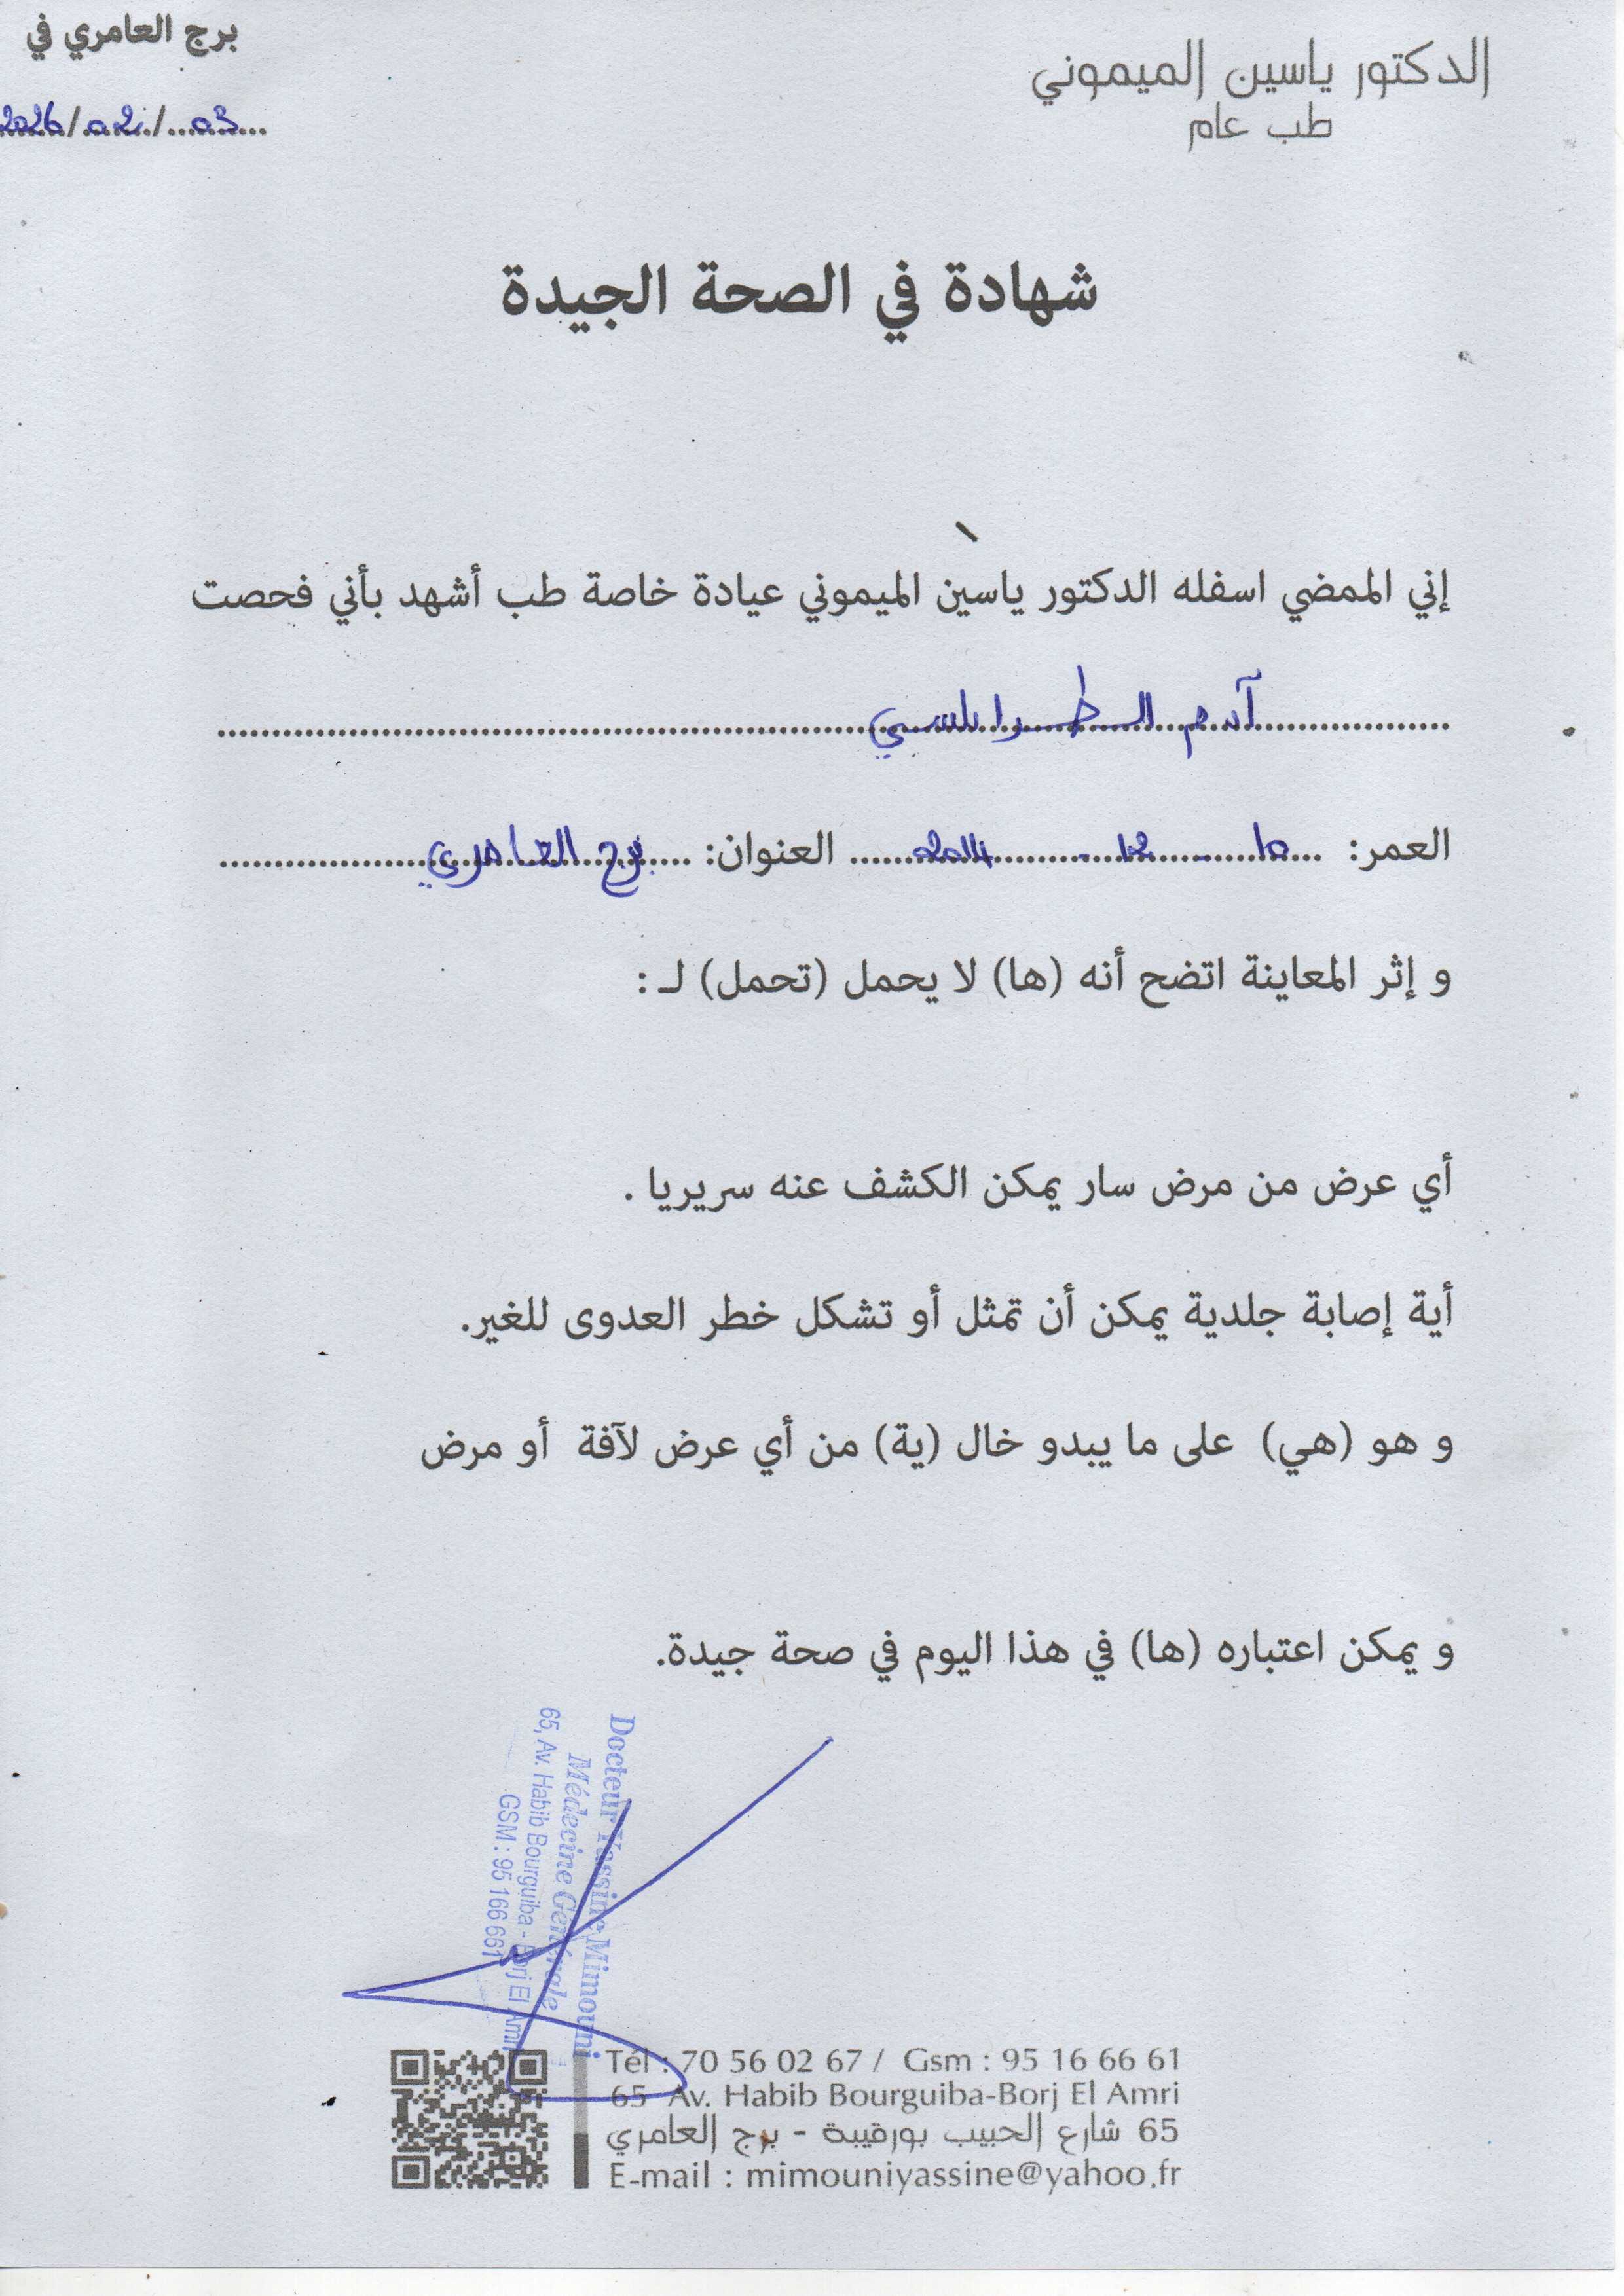 الدكتور ياسين الميموني
طب عام
برج العامري في
2026/02/03
شهادة في الصحة الجيدة
إني الممضي اسفله الدكتور ياسين الميموني عيادة خاصة طب أشهد بأني فحصت
آدم الطرابلسي
العمر: 10 - 12 - 2014 العنوان: برج العامري
و إثر المعاينة اتضح أنه (ها) لا يحمل (تحمل) لـ :
أي عرض من مرض سار يمكن الكشف عنه سريريا .
أية إصابة جلدية يمكن أن تمثل أو تشكل خطر العدوى للغير.
و هو (هي) على ما يبدو خال (ية) من أي عرض لآفة أو مرض
و يمكن اعتباره (ها) في هذا اليوم في صحة جيدة.
Docteur Yassine Mimouni
Médecine Générale
65, Av. Habib Bourguiba - Borj El Amri
GSM : 95 166 661
Tél : 70 56 02 67 / Gsm : 95 16 66 61
65 Av. Habib Bourguiba-Borj El Amri
65 شارع الحبيب بورقيبة - برج العامري
E-mail : mimouniyassine@yahoo.fr